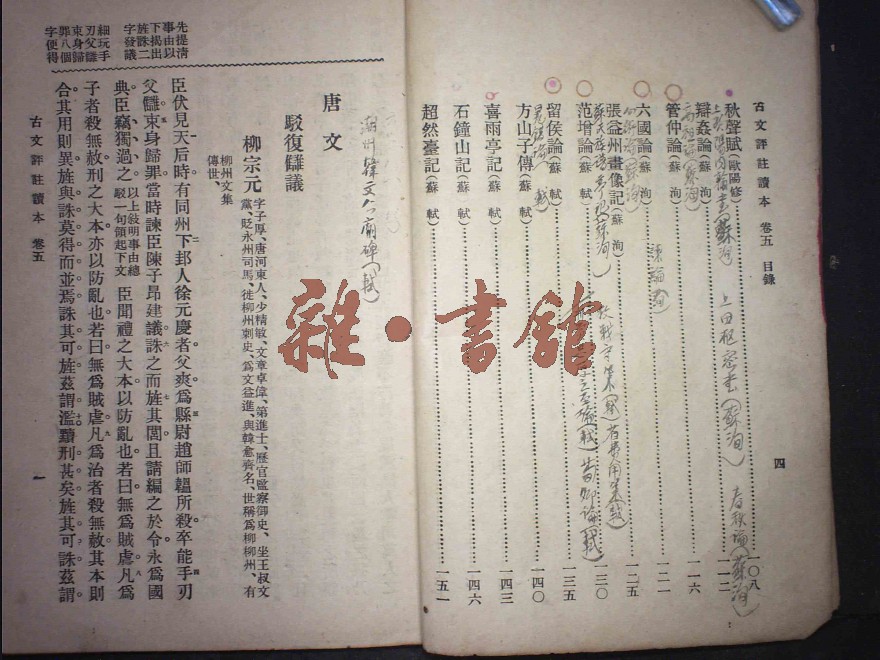 古文評註讀本 卷五 目錄
四
秋聲賦(歐陽修)一〇八
辯姦論(蘇洵)一一二
管仲論(蘇洵)一一六
六國論(蘇洵)一二一
張益州畫像記(蘇洵)一二五
范增論(蘇軾)一三〇
留侯論(蘇軾)一三五
方山子傳(蘇軾)一四〇
喜雨亭記(蘇軾)一四三
石鐘山記(蘇軾)一四六
超然臺記(蘇軾)一五一
上田樞密書(蘇洵)
春秋論(蘇洵)
潮州韓文公廟碑(軾)
雜·書館
唐文
駁復讎議
柳宗元
字子厚、唐河東人、少精敏、文章卓偉、第進士、歷官監察御史、坐王叔文
黨、貶永州司馬、徙柳州刺史、爲文益進、與韓愈齊名、世稱爲柳柳州、有
柳州文集
傳世、
臣伏見天后時有同州下邽人徐元慶者父爽爲縣尉趙師韞所殺卒能手刃
父讎束身歸罪當時諫臣陳子昂建議誅之而旌其閭且請編之於令永爲國
典臣竊獨過之 以上敍明事由總駁一句領起下文 臣聞禮之大本以防亂也若曰無爲賊虐凡爲
子者殺無赦刑之大本亦以防亂也若曰無爲賊虐凡爲治者殺無赦其本則
合其用則異旌與誅莫得而並焉誅其可旌茲謂濫黷刑甚矣旌其可誅茲謂
先提清
事由以
下揭出
旌誅二
字發議
細玩手
刃父讎
束身歸
罪八個
字便得
古文評註讀本 卷五
一